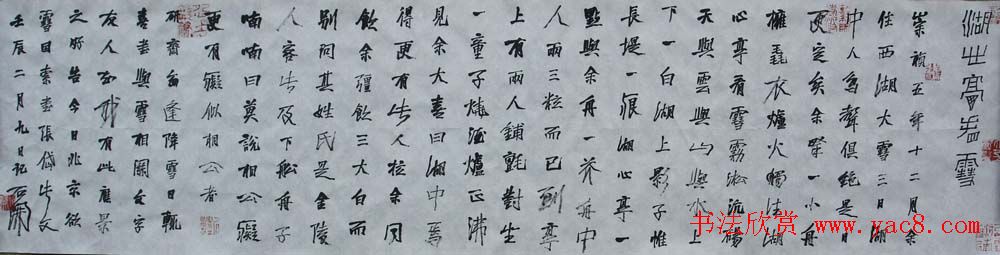 湖心亭看雪
崇禎五年十二月余
住西湖大雪三日湖
中人鳥聲俱絕是日
更定矣余拏一小舟
擁毳衣爐火獨往湖
心亭看雪霧凇沆碭
天與雲與山與水上
下一白湖上影子惟
長堤一痕湖心亭一
點與余舟一芥舟中
人兩三粒而已到亭
上有兩人鋪氈對坐
一童子燒酒爐正沸
見余大喜曰湖中焉
得更有此人拉余同
飲余彊飲三大白而
別問其姓氏是金陵
人客此及下船舟子
喃喃曰莫說相公癡
更有癡似相公者
研齋每逢降雪日輒
喜書與雪相關文字
友人有此雅
之好告今日北京欲
雪因索書張岱此文
壬辰二月九日記
书法欣赏
www.yac8.com